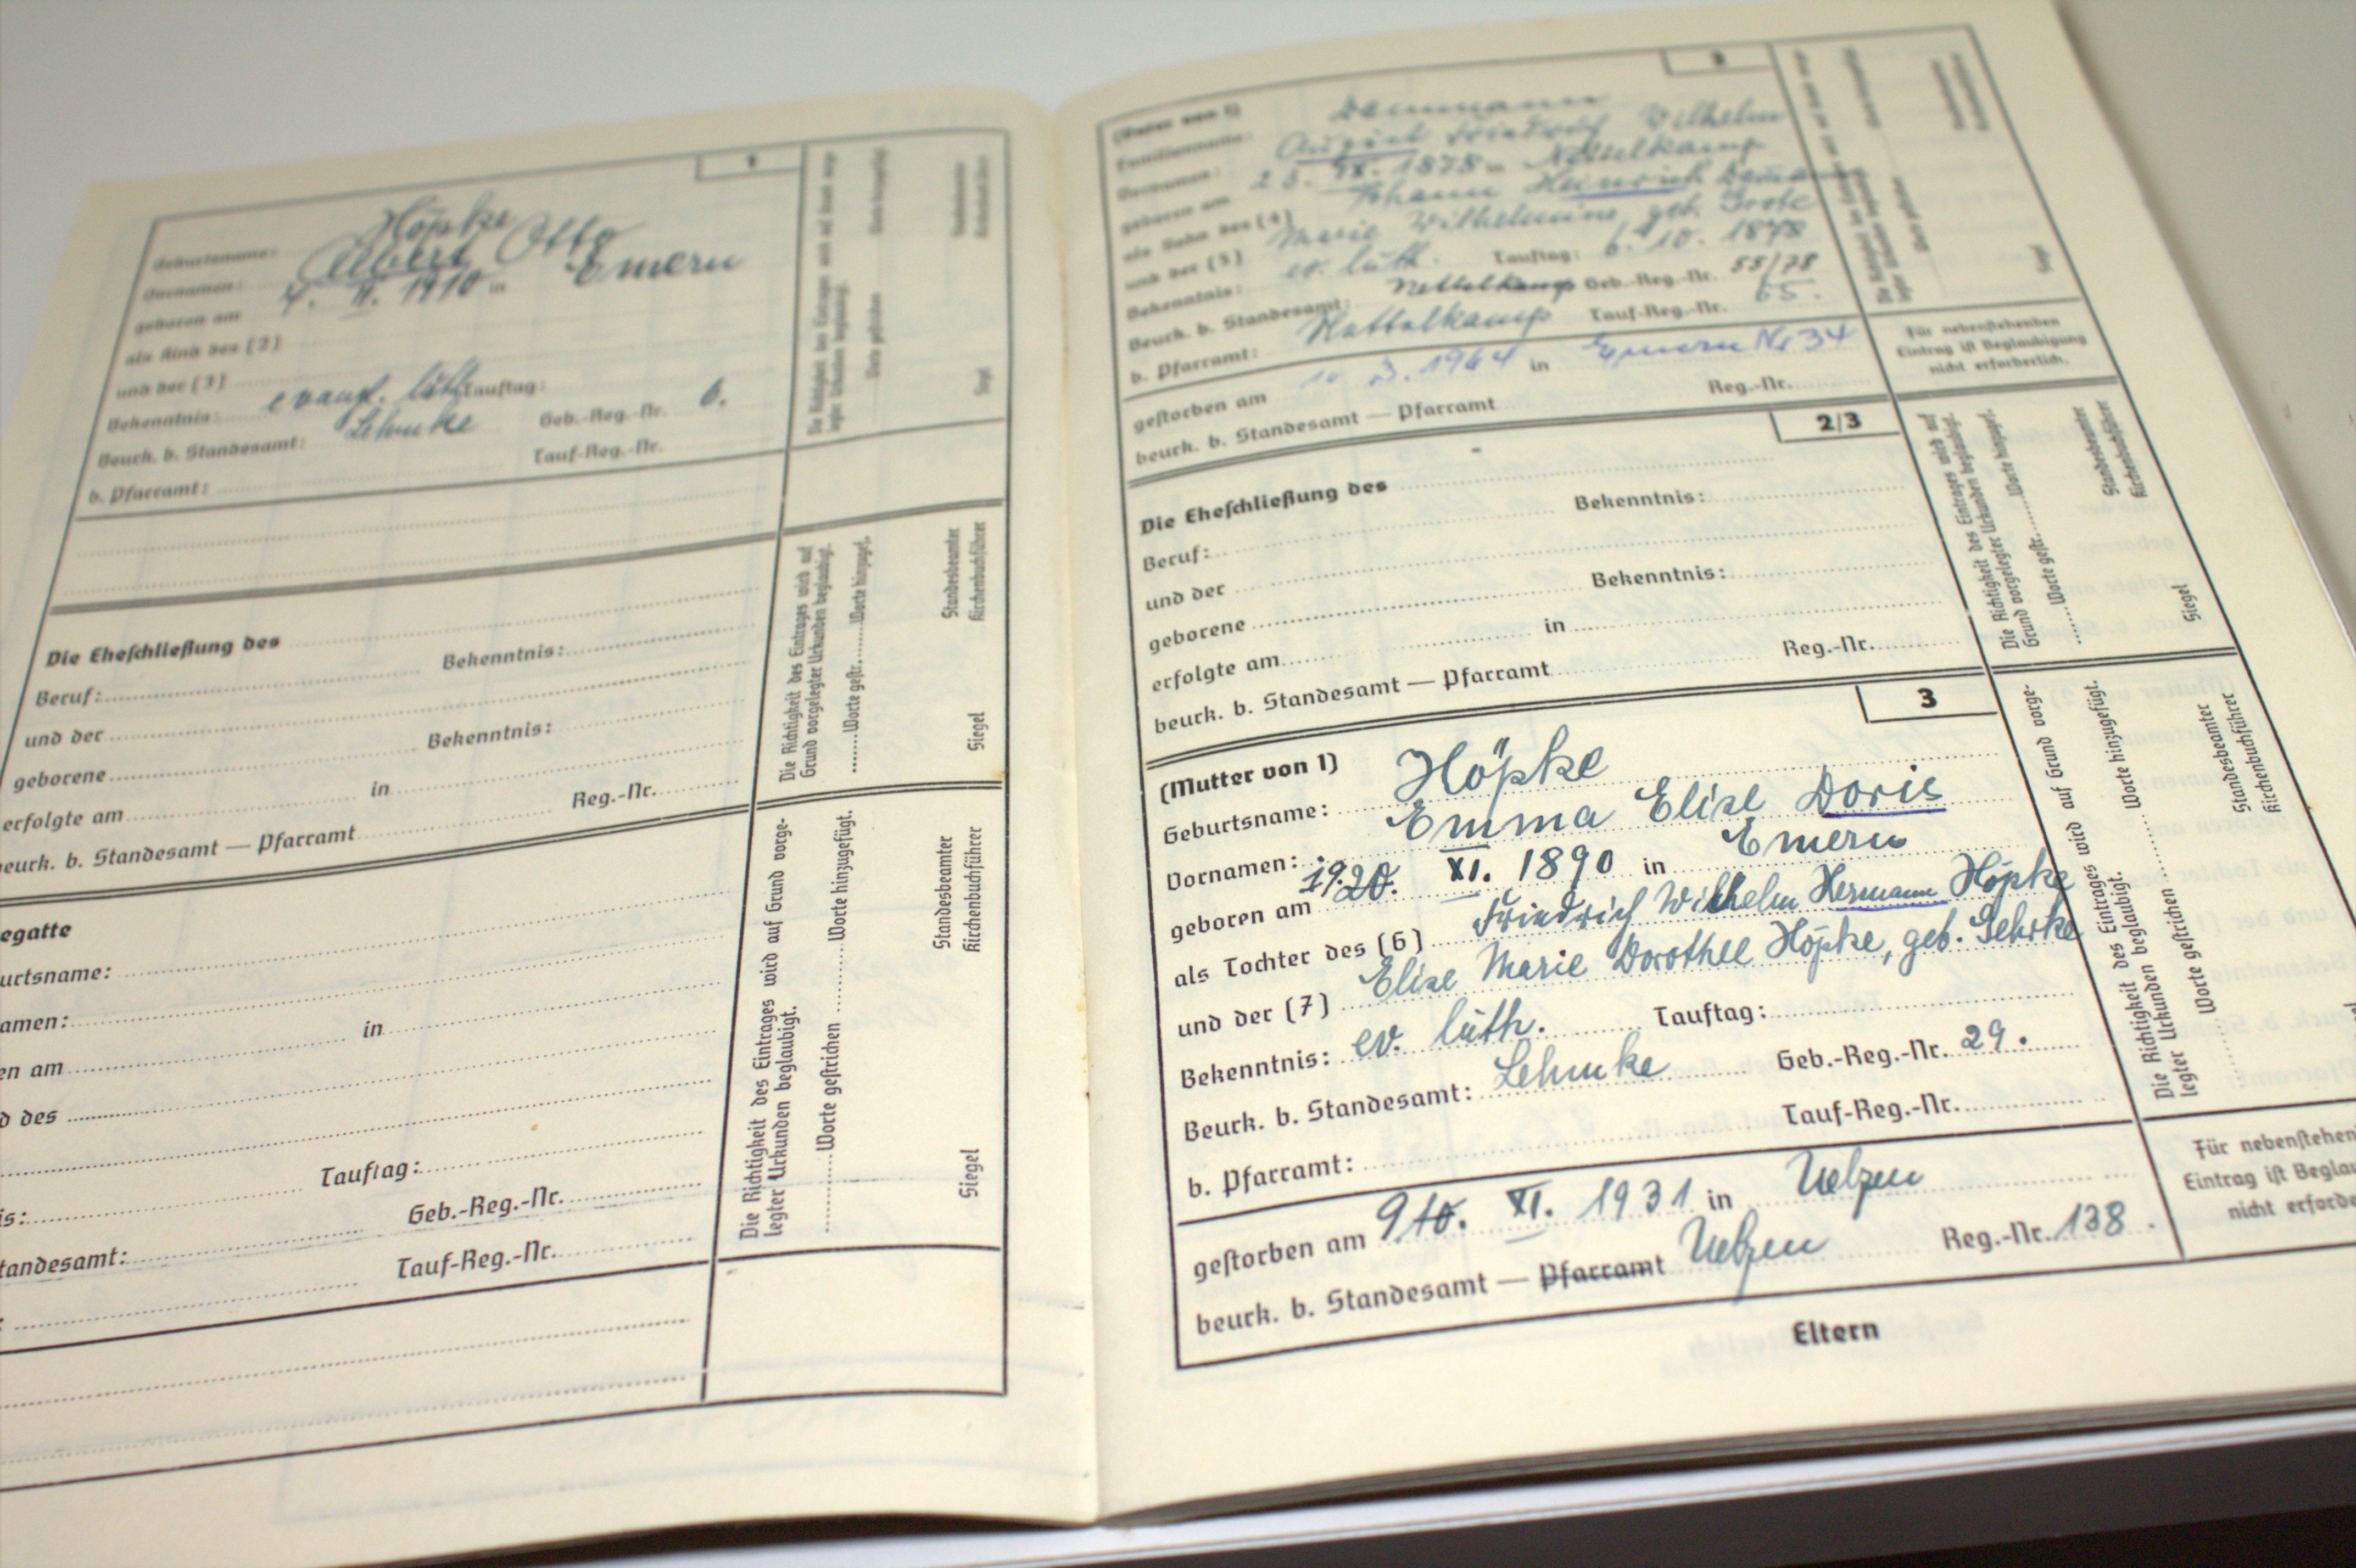 1
Geburtsname: Höpke
Vornamen: Albert Otto
geboren am 4. II. 1910 in Emern
als Kind des (2)
und der (3)
Bekenntnis: evang. luth. Tauftag:
Beurk. b. Standesamt: Lehmke Geb.-Reg.-Nr. 6.
b. Pfarramt: Tauf-Reg.-Nr.
Die Eheschließung des
Beruf: Bekenntnis:
und der
geborene Bekenntnis:
erfolgte am in
beurk. b. Standesamt — Pfarramt Reg.-Nr.
Die Richtigkeit des Eintrages wird auf
Grund vorgelegter Urkunden beglaubigt.
Worte gestr. Worte hinzugef.
Standesbeamter
Kirchenbuchführer
Siegel
egatte
urtsname:
amen:
en am in
d des
is: Tauftag:
tandesamt: Geb.-Reg.-Nr.
: Tauf-Reg.-Nr.
Die Richtigkeit des Eintrages wird auf Grund vorge-
legter Urkunden beglaubigt.
Worte gestrichen Worte hinzugefügt.
Standesbeamter
Kirchenbuchführer
Siegel
2
(Vater von 1)
Familienname: Dammann
Vornamen: August Friedrich Wilhelm
geboren am 23. IX. 1878 in Nettelkamp
als Sohn des (4) Johann Heinrich Dammann
und der (5) Marie Wilhelmine, geb. Grote
Bekenntnis: ev. luth. Tauftag: 6. 10. 1878
Beurk. b. Standesamt: Nettelkamp Geb.-Reg.-Nr. 55/78
b. Pfarramt: Nettelkamp Tauf-Reg.-Nr. 65.
gestorben am 3. 1964 in Emern Nr 34
beurk. b. Standesamt — Pfarramt Reg.-Nr.
Für nebenstehenden
Eintrag ist Beglaubigung
nicht erforderlich.
2/3
Die Eheschließung des
Beruf: Bekenntnis:
und der
geborene Bekenntnis:
erfolgte am in
beurk. b. Standesamt — Pfarramt Reg.-Nr.
Die Richtigkeit des Eintrages wird auf
Grund vorgelegter Urkunden beglaubigt.
Worte gestr. Worte hinzugef.
Standesbeamter
Kirchenbuchführer
Siegel
3
(Mutter von 1)
Geburtsname: Höpke
Vornamen: Emma Elise Doris
geboren am 19. 20. XI. 1890 in Emern
als Tochter des (6) Friedrich Wilhelm Hermann Höpke
und der (7) Elise Marie Dorothee Höpke, geb. Gehrke
Bekenntnis: ev. luth. Tauftag:
Beurk. b. Standesamt: Lehmke Geb.-Reg.-Nr. 29.
b. Pfarramt: Tauf-Reg.-Nr.
gestorben am XI. 1931 in Uelzen
beurk. b. Standesamt — Pfarramt Uelzen Reg.-Nr. 138.
Die Richtigkeit des Eintrages wird auf Grund vorge-
legter Urkunden beglaubigt.
Worte gestrichen Worte hinzugefügt.
Standesbeamter
Kirchenbuchführer
Für nebenstehen
Eintrag ist Beglau
nicht erforde
Eltern